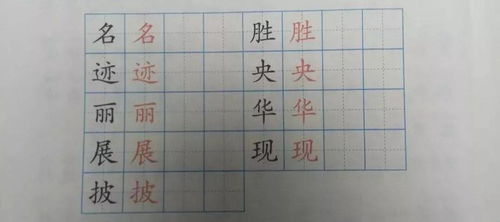 名名 胜胜
迹迹 央央
丽丽 华华
展展 现现
披披